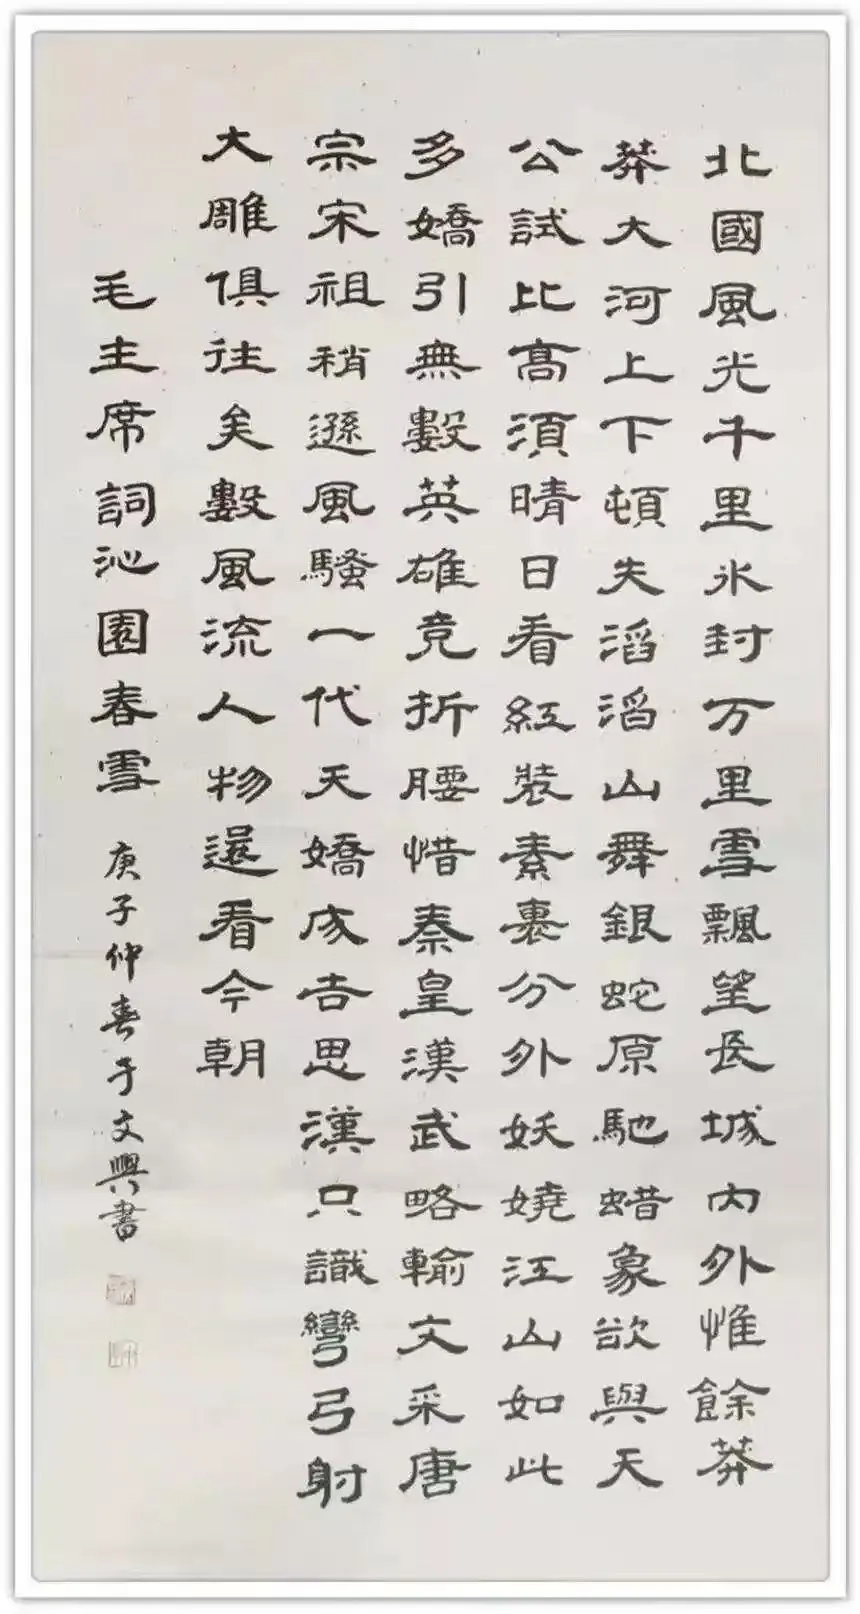 北國風光千里冰封万里雪飄望長城内外惟餘莽
莽大河上下頓失滔滔山舞銀蛇原馳蜡象欲與天
公試比高須晴日看紅裝素裹分外妖嬈江山如此
多嬌引無數英雄竞折腰惜秦皇漢武略輸文采唐
宗宋祖稍遜風騷一代天嬌成吉思漢只識彎弓射
大雕俱往矣數風流人物還看今朝
毛主席詞沁園春雪 庚子仲春于文興書